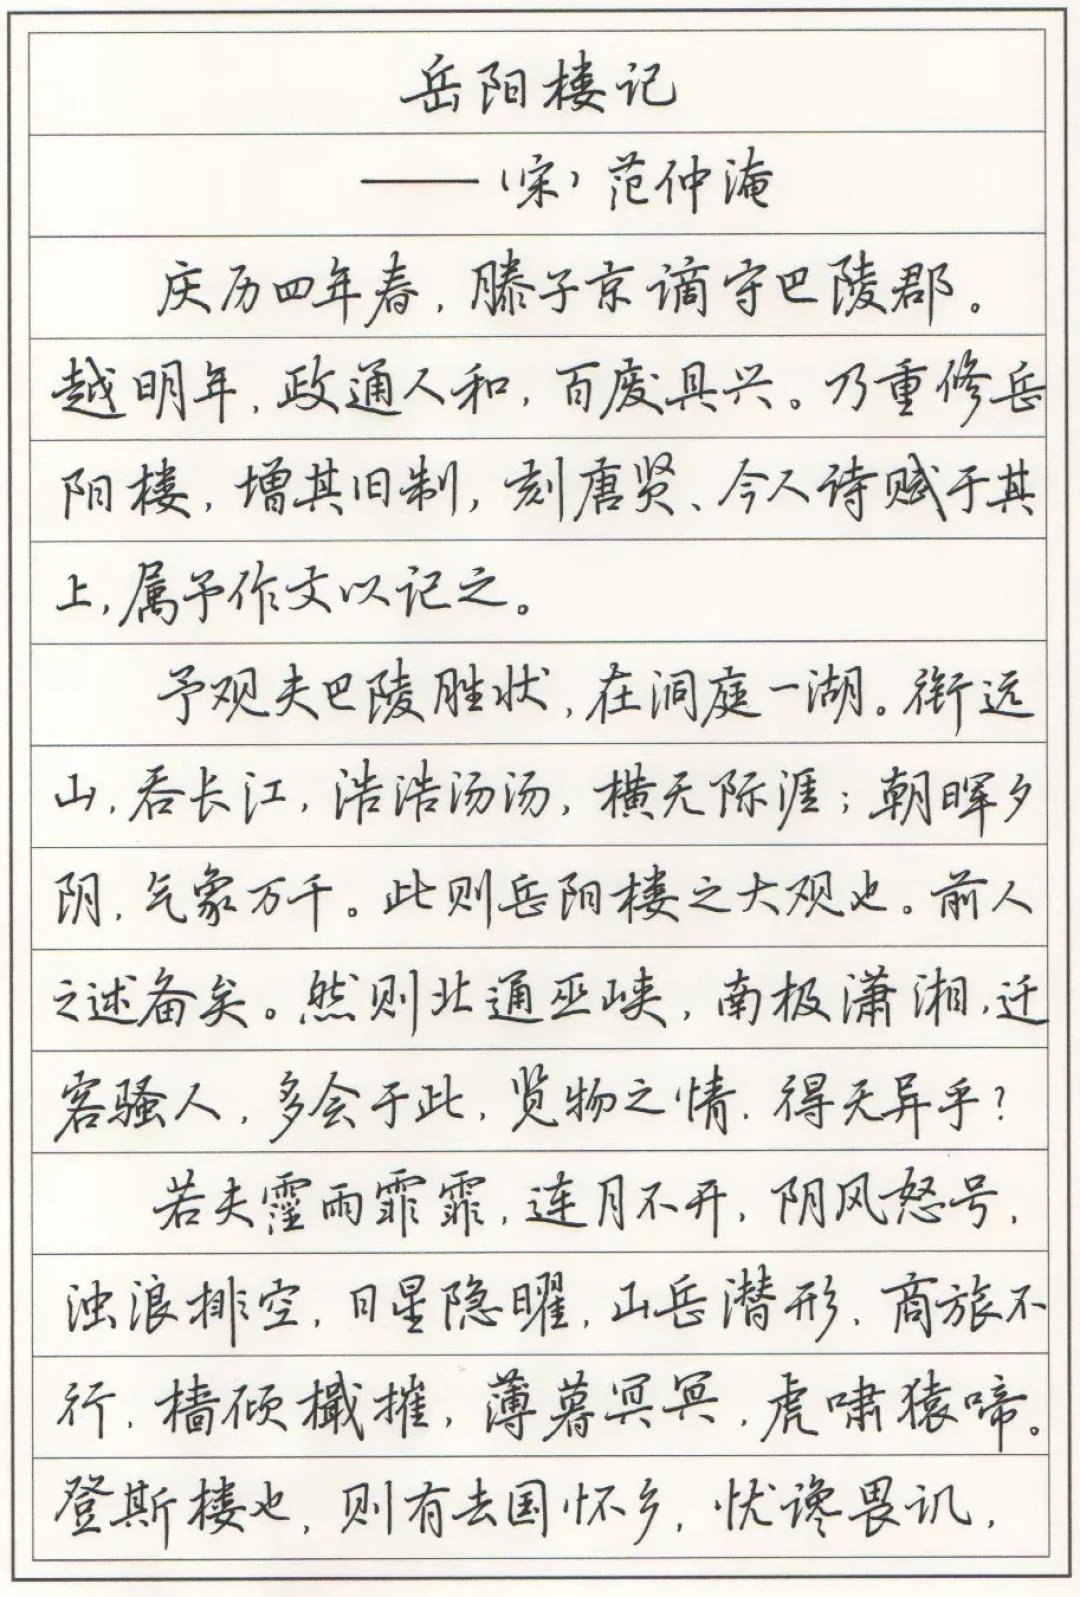 岳阳楼记
——（宋）范仲淹
庆历四年春，滕子京谪守巴陵郡。
越明年，政通人和，百废具兴。乃重修岳
阳楼，增其旧制，刻唐贤、今人诗赋于其
上，属予作文以记之。
予观夫巴陵胜状，在洞庭一湖。衔远
山，吞长江，浩浩汤汤，横无际涯；朝晖夕
阴，气象万千。此则岳阳楼之大观也。前人
之述备矣。然则北通巫峡，南极潇湘，迁
客骚人，多会于此，览物之情，得无异乎？
若夫霪雨霏霏，连月不开，阴风怒号，
浊浪排空，日星隐曜，山岳潜形，商旅不
行，樯倾檝摧，薄暮冥冥，虎啸猿啼。
登斯楼也，则有去国怀乡，忧谗畏讥，